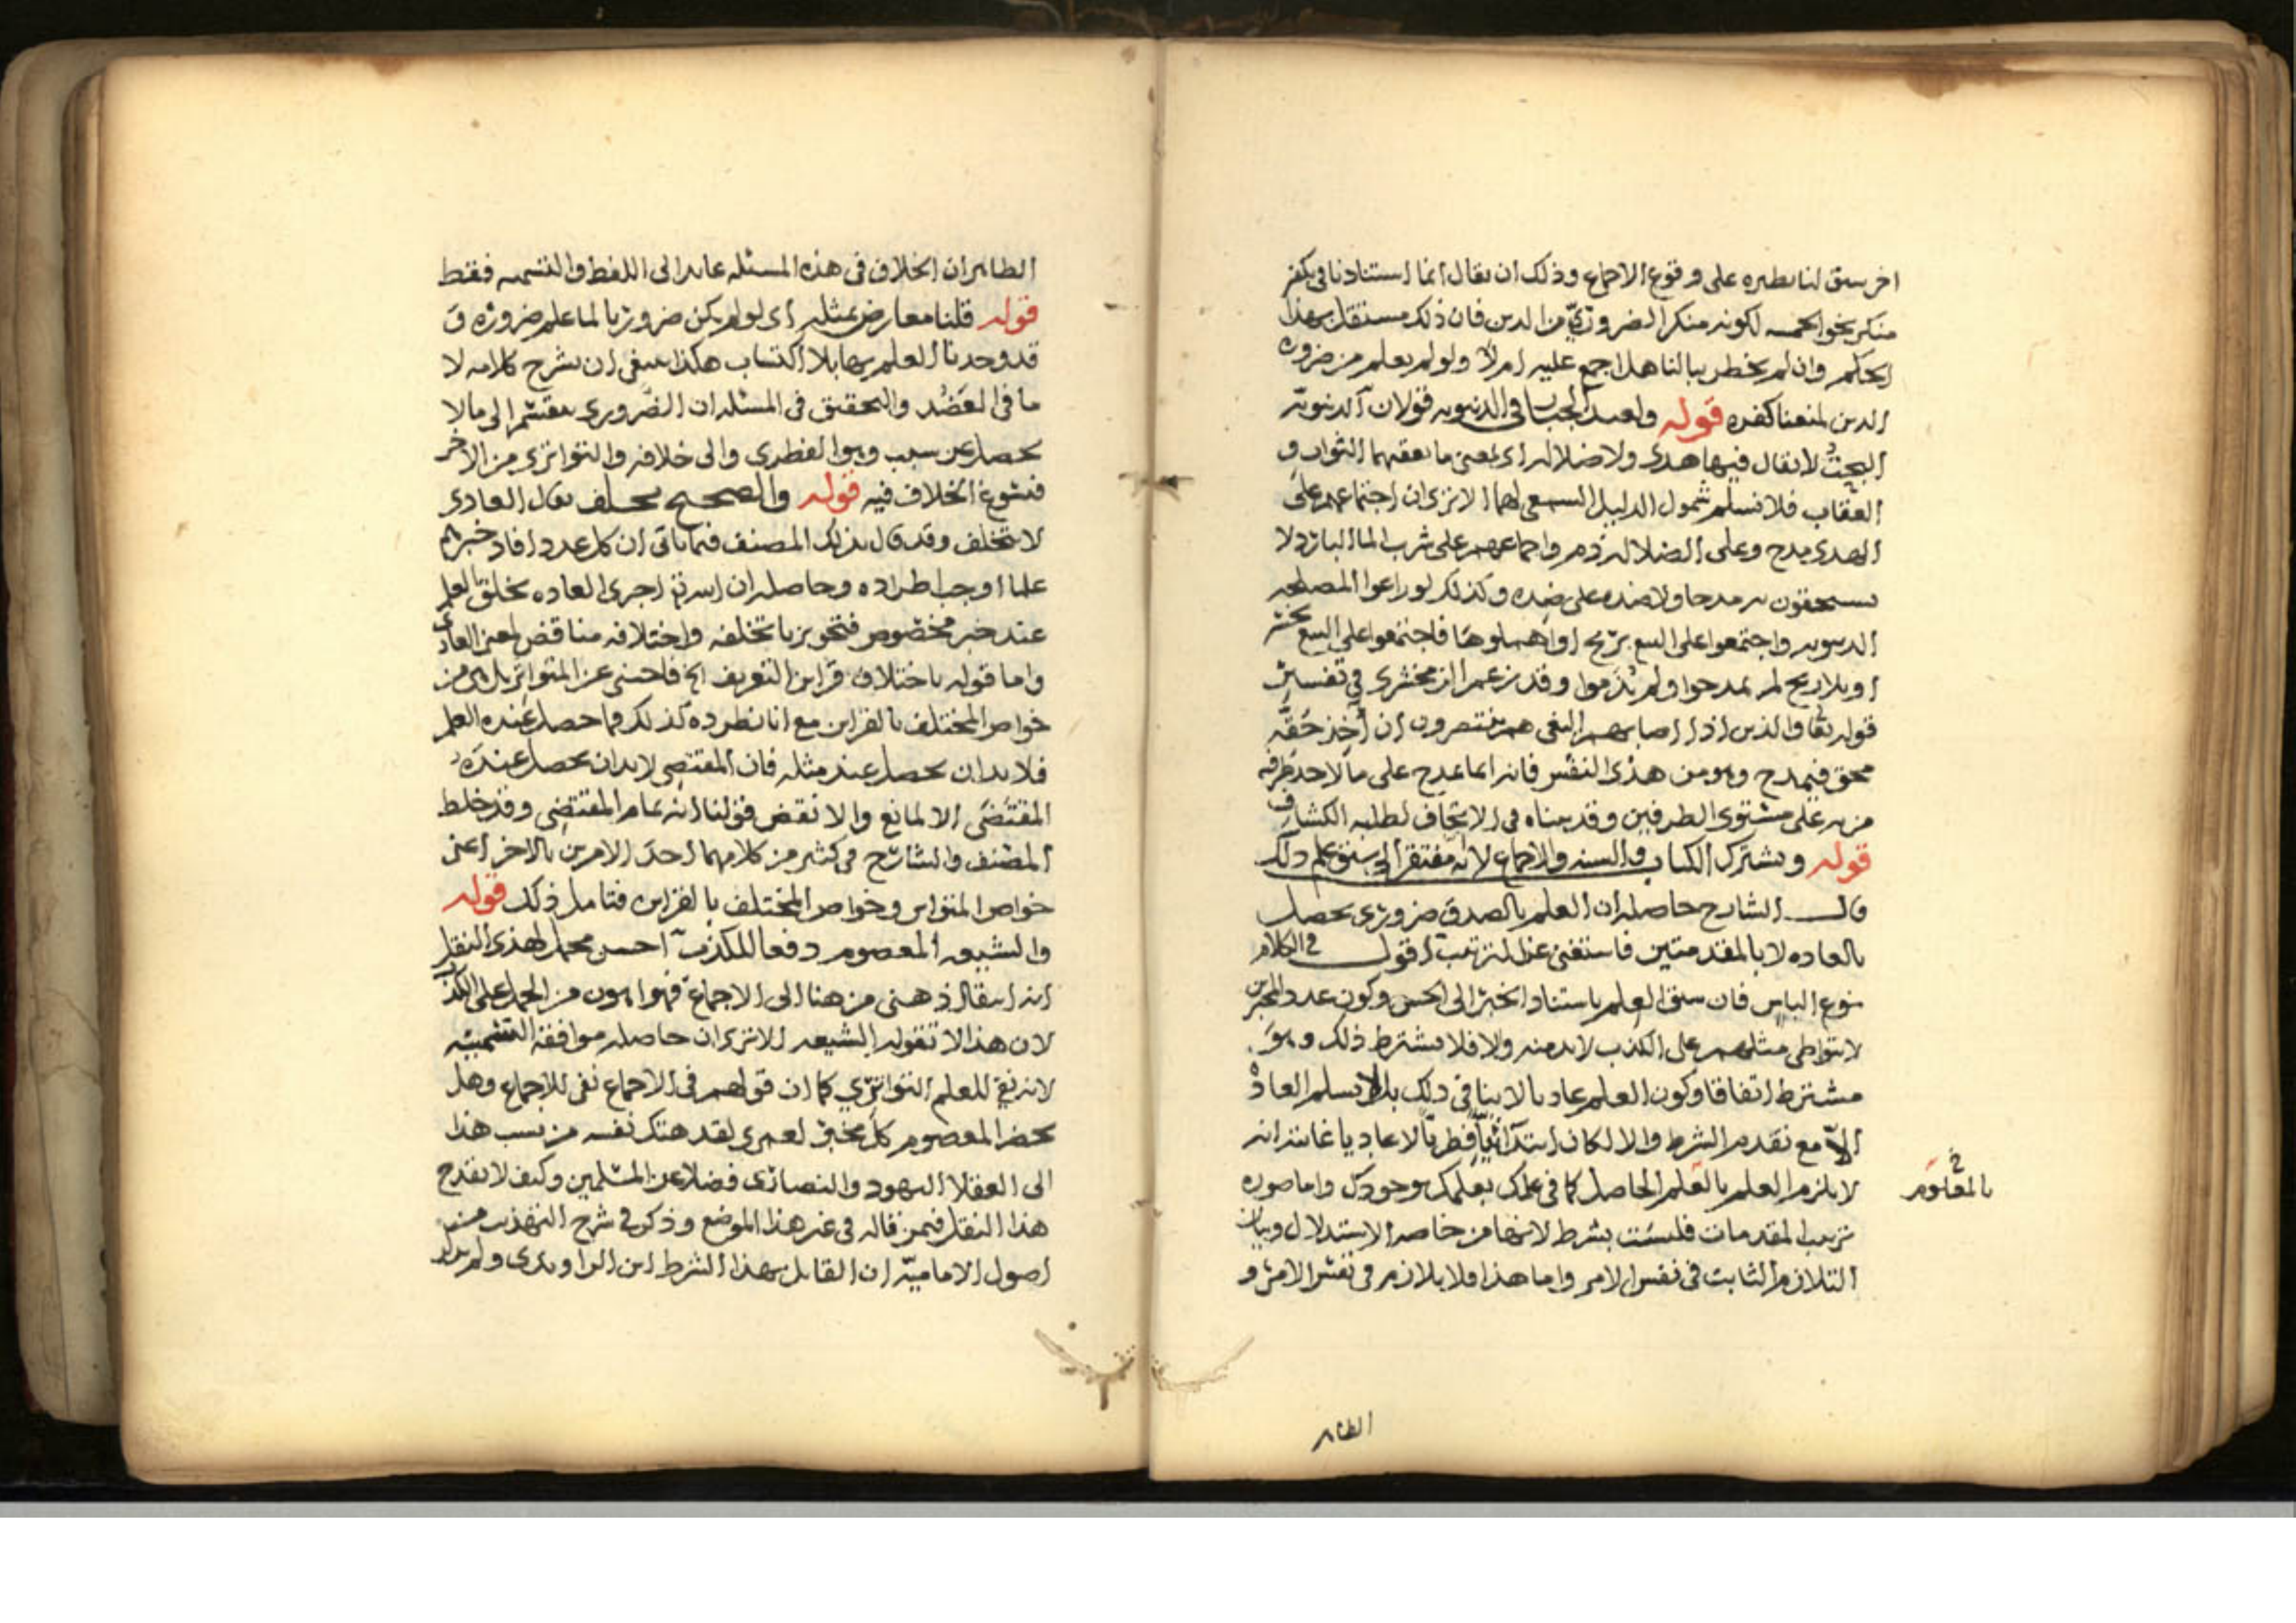 اخر سبق لنا نظيره على وقوع الاجماع وذلك ان يقال انما استنادنا في تكفير
منكر نحو الخمسه لكونه منكر الضروري من الدين فان ذلك مستقل بهذا
الحكم وان لم يخطر ببالنا هل اجمع عليه ام لا ولو لم يعلم من ضروره
الدين لمنعنا كفره قوله ولعبد الجبار في الدنيويه قولان الدنيويه
البحت لا يقال فيها هدى ولا ضلاله اي بمعنى ما يعقبهما الثواب و
العقاب فلا نسلم شمول الدليل السمعي لهما الا ترى ان اجتماعهم على
الهدى مدح وعلى الضلاله ذم واجماعهم على شرب الما البارد لا
يستحقون به مدحا ولا ضده على ضده وكذلك لو راعوا المصلحه
الدنيويه واجتمعوا على البيع بربح او اهملوها فاجتمعوا على البيع بخسر
او بلا ربح لم يمدحوا ولم يذموا وقد زعم الزمخشري في تفسير
قوله تعا والذين اذا اصابهم البغي هم ينتصرون ان اخذ حقه
محق فيمدح وهو من هذى النفس فانه انما يمدح على ما لاحد طرفيه
مزيه على مستوى الطرفين وقد بيناه في الاتحاف لطلبه الكشاف
قوله ويشترك الكتاب والسنه والاجماع لانه مفتقر الى سبق علم ذلك
قال الشارح حاصله ان العلم بالصدق ضروري يحصل
بالعاده لا بالمقدمتين فاستغنى عن الترتيب اقول في الكلام
نوع الباس فان سبق العلم باستناد الخبر الى الحس وكون عدد المخبرين
لا يتواطى مثلهم على الكذب لابد منه والا فلا يشترط ذلك وهو
مشترط اتفاقا وكون العلم عاديا لا ينافي ذلك بل لا نسلم العاده
الا مع تقدم الشرط والا لكان ابتدائيا فطريا لا عاديا غايته انه
لا يلزم العلم بالعلم الحاصل كما في علمك بعلمك بوجودك واما صوره
بالمعلوم
ترتيب المقدمات فليست بشرط لانها من خاصه الاستدلال وبيان
التلازم الثابت في نفس الامر واما هذا فلا تلازم في نفس الامر و
الظاهر
الظاهر ان الخلاف في هذه المسئله عايد الى اللفظ والتسميه فقط
قوله قلنا معارض بمثله اي لو لم يكن ضروريا لما علم ضروره و
قد وجدنا العلم بها بلا اكتساب هكذا ينبغي ان يشرح كلامه لا
ما في العضد والتحقيق في المسئله ان الضروري ينقسم الى ما لا
يحصل عن سبب وهو الفطري والى خلافه والتواتري من الاخر
فيسوغ الخلاف فيه قوله والصحيح يختلف يقال العادي
لا يتخلف وقد قال بذلك المصنف فيما ياتي ان كل عدد افاد خبرهم
علما اوجب اطراده وحاصله ان الله تع اجرى العاده بخلق العلم
عند خبر مخصوص فتجويزنا تخلفه واختلافه مناقض لمعنى العادي
واما قوله باختلاف قراين التعريف الخ فاجنبي عن المتواتر بل هي من
خواص المختلف بالقراين مع انا نطرده كذلك فما حصل عنده العلم
فلا بد ان يحصل عند مثله فان المقتضي لابد ان يحصل عنده
المقتضى الا لمانع والا نقض قولنا انه تمام المقتضي وقد خلط
المصنف والشارح في كثير من كلامهما احد الامرين بالاخر اعني
خواص المتواتر وخواص المختلف بالقراين فتامل ذلك قوله
والشيعه المعصوم دفعا للكذب احسن محمل لهذى النقل
انه انتقال ذهني من هنا الى الاجماع فهو اهون من الحمل على الكذب
لان هذا لا تقوله الشيعه الا ترى ان حاصله موافقه السمنيه
لانه نفي للعلم التواتري كما ان قولهم في الاجماع نفي للاجماع وهل
يحضر المعصوم كل مخبر لعمري لقد هتك نفسه من نسب هذا
الى العقلا اليهود والنصارى فضلا عن المسلمين وكيف لا يقدح
هذا النقل فيمن قاله في غير هذا الموضع وذكر في شرح التهذيب من
اصول الاماميه ان القايل بهذا الشرط ابن الراوندي ولم